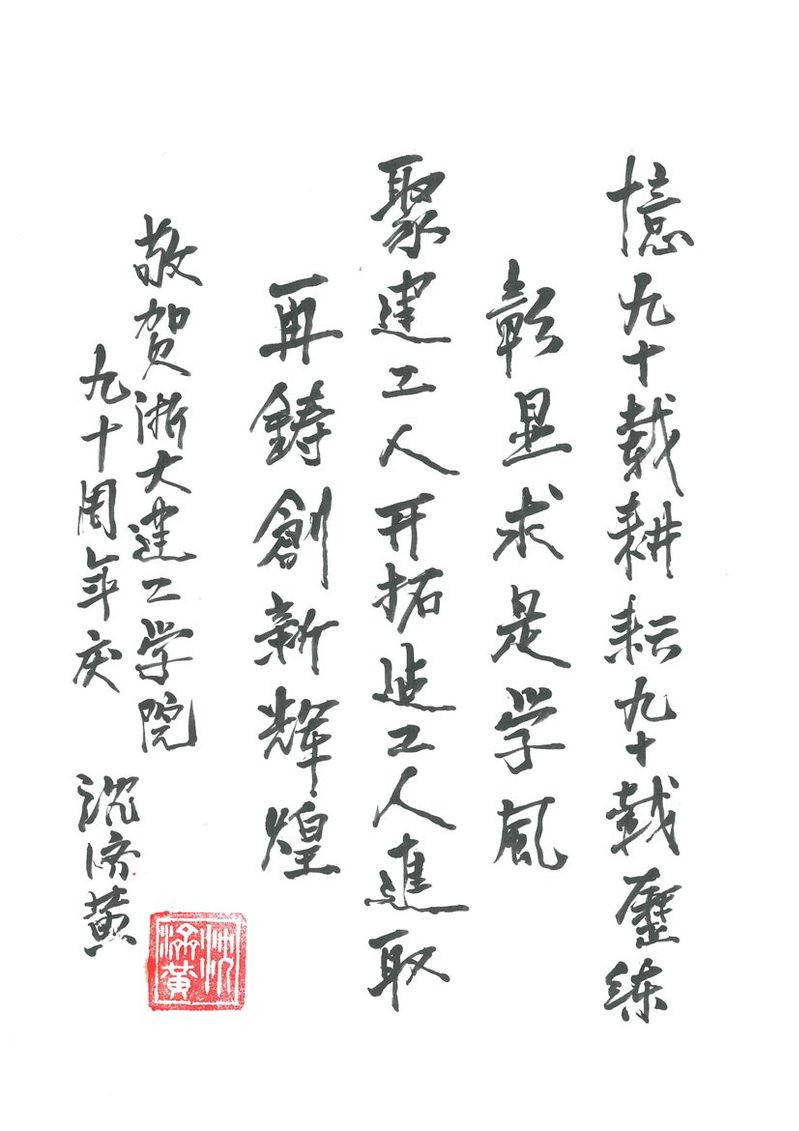 憶九十载耕耘九十载歷练
彰显求是学風
聚建工人开拓建工人進取
再鑄創新輝煌
敬贺浙大建工学院
九十周年庆
沈济黄
沈济黄